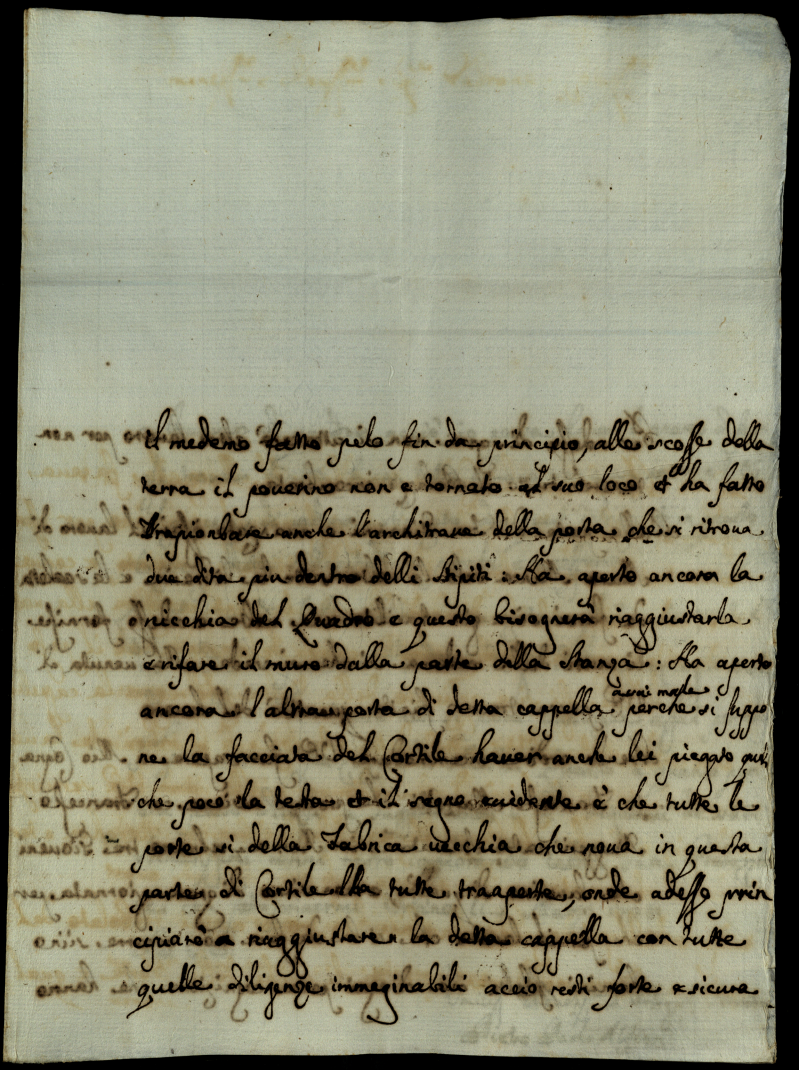 il medemo fatto pelo fin da principio, alle scosse della
terra il poverino non e tornato al suo loco et ha fatto
strapionbare anche l'architrave della porta che si ritrova
due dita piu dentro delli stipiti: Ha aperto ancora la
nicchia del Quadro e questo bisognerà riaggiustarla
e rifare il muro dalla parte della stanza: Ha aperto
ancora l'altra porta di detta cappella assai male perche si suppo
ne la facciata del Cortile haver anche lei piegato qual
che poco la testa et il segno evidente è che tutte le
porte si della Fabrica vecchia che nova in questa
parte di Cortile Ha tutte traaperte, onde adesso prin
cipiarò a riaggiustare la detta cappella con tutte
quelle diligenze immaginabili acciò resti forte e sicura